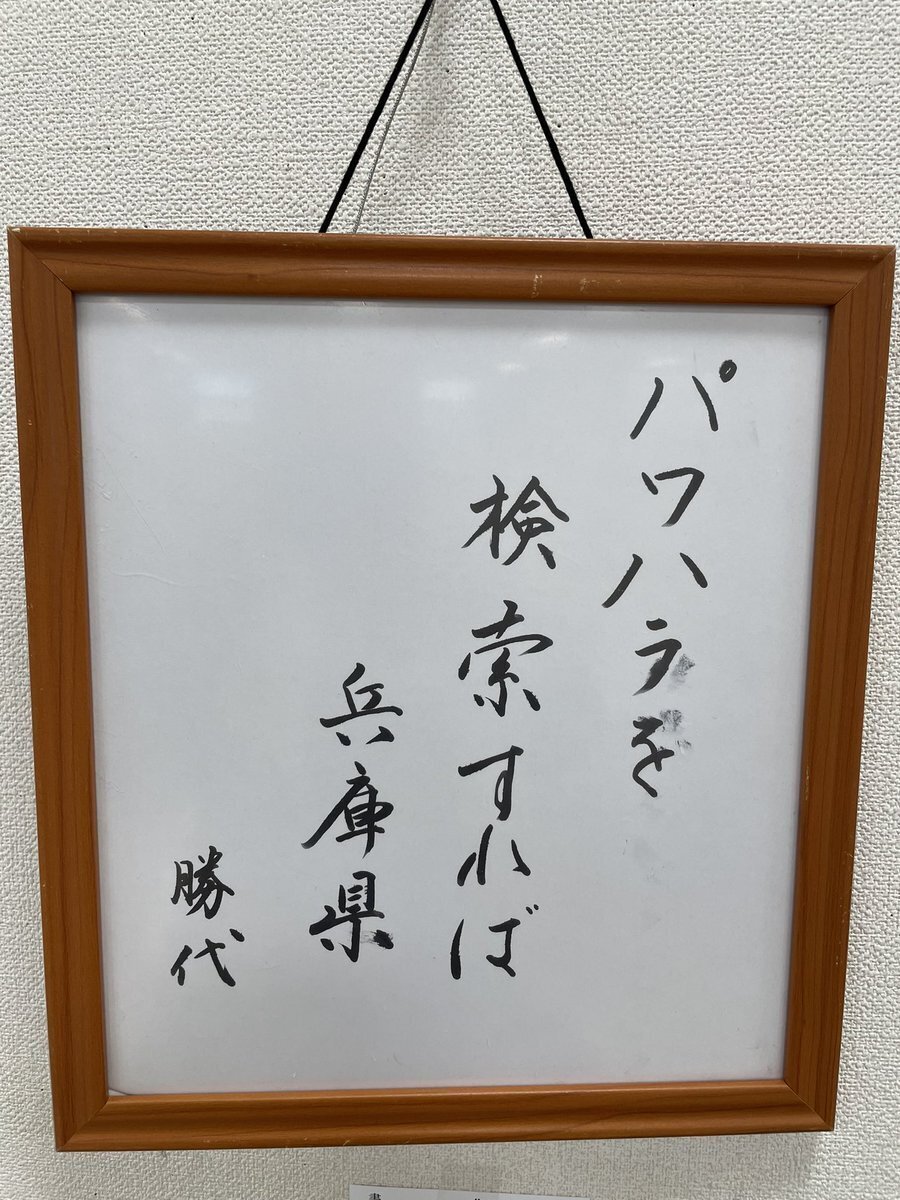 パワハラを
検索すれば
兵庫県
勝代